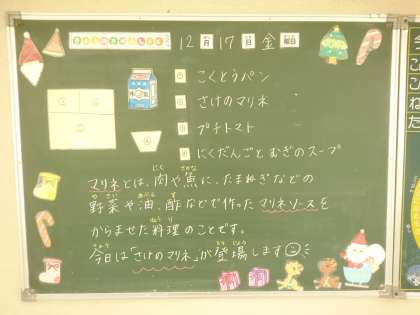 きょうのきゅうしょく 12月17日金曜日
① こくとうパン
② さけのマリネ
③ プチトマト
④ にくだんごと むぎのスープ
① ②
③
④
マリネとは、肉や魚に、たまねぎなどの
野菜や油、酢などで作ったマリネソースを
からませた料理のことです。
今日は「さけのマリネ」が登場します